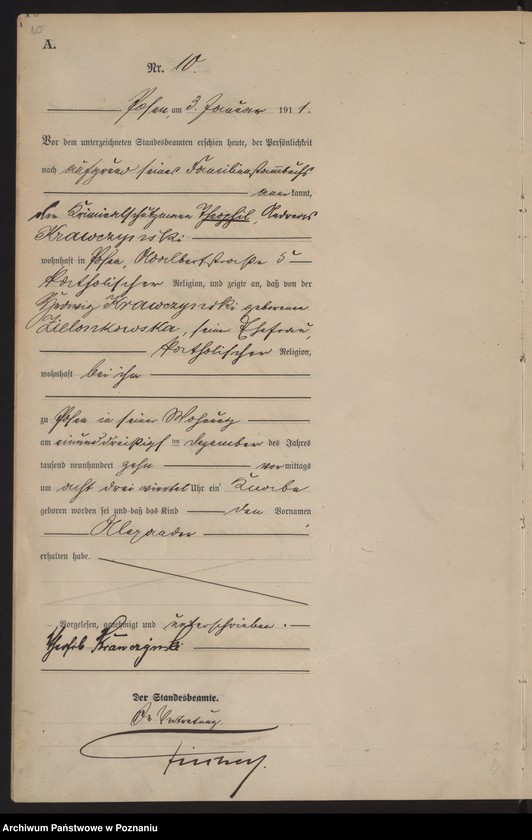 A.
Nr. 10.
Posen, am 3. Januar 1911.
Vor dem unterzeichneten Standesbeamten erschien heute, der Persönlichkeit
nach aufgrund seines Familienstammbuchs
anerkannt,
der Kriminalschutzmann Theophil, Andreas
Krawczynski
wohnhaft in Posen, Adalbertstraße 5
katholischer Religion, und zeigte an, daß von der
Hedwig Krawczynski geborenen
Zielonkowska, seiner Ehefrau,
katholischer Religion,
wohnhaft bei ihm
zu Posen in seiner Wohnung
am einunddreißigsten Dezember des Jahres
tausend neunhundert zehn vormittags
um acht drei viertel Uhr ein Knabe
geboren worden sei und daß das Kind den Vornamen
Alexander
erhalten habe.
Vorgelesen, genehmigt und unterschrieben.
Theofil Krawczynski
Der Standesbeamte.
In Vertretung.
Archiwum Państwowe w Poznaniu